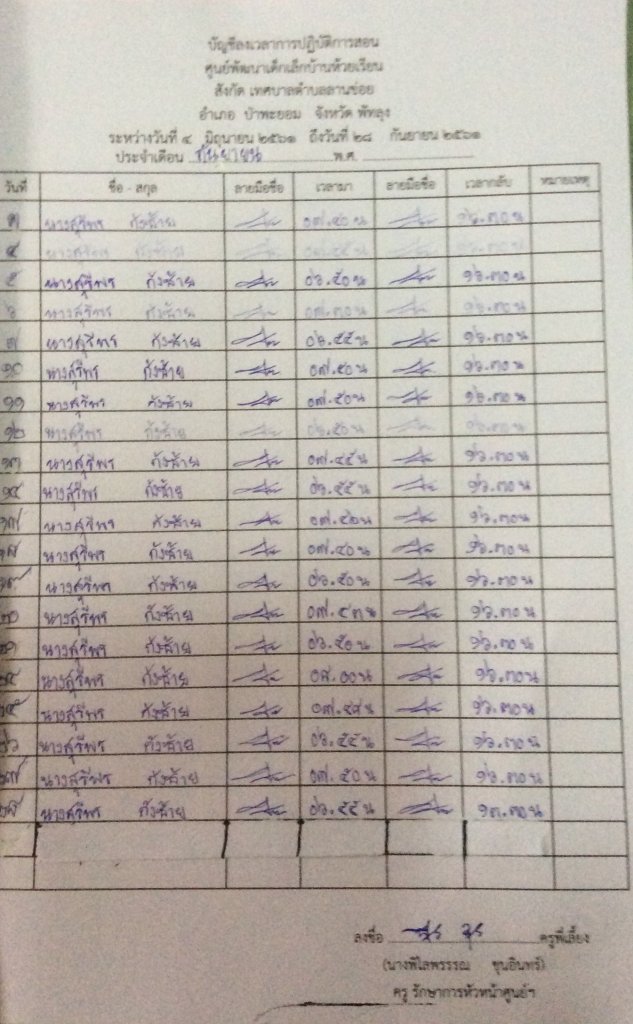 บัญชีลงเวลาการปฏิบัติการสอน
ศูนย์พัฒนาเด็กเล็กบ้านห้วยเรียน
สังกัด เทศบาลตำบลลานข่อย
อำเภอ ป่าพะยอม จังหวัด พัทลุง
ระหว่างวันที่ ๔ มิถุนายน ๒๕๖๑ ถึงวันที่ ๒๘ กันยายน ๒๕๖๑
ประจำเดือน กันยายน พ.ศ.
วันที่ ชื่อ - สกุล ลายมือชื่อ เวลามา ลายมือชื่อ เวลากลับ หมายเหตุ
๓ นางสุรีพร กังฮ้าย ๐๗.๔๐น ๑๖.๓๐น
๔ นางสุรีพร กังฮ้าย ๑๖.๓๐น
๕ นางสุรีพร กังฮ้าย ๐๖.๕๐น ๑๖.๓๐น
๖ นางสุรีพร กังฮ้าย ๐๗.๓๐น ๑๖.๓๐น
๗ นางสุรีพร กังฮ้าย ๐๖.๕๕น ๑๖.๓๐น
๑๐ นางสุรีพร กังฮ้าย ๐๗.๕๐น ๑๖.๓๐น
๑๑ นางสุรีพร กังฮ้าย ๐๗.๕๐น ๑๖.๓๐น
๑๒ นางสุรีพร กังฮ้าย ๐๖.๕๐น ๑๖.๓๐น
๑๓ นางสุรีพร กังฮ้าย ๐๗.๔๕น ๑๖.๓๐น
๑๔ นางสุรีพร กังฮ้าย ๐๖.๕๕น ๑๖.๓๐น
๑๗ นางสุรีพร กังฮ้าย ๑๖.๓๐น
๑๘ นางสุรีพร กังฮ้าย ๐๗.๔๐น ๑๖.๓๐น
๑๙ นางสุรีพร กังฮ้าย ๐๖.๕๐น ๑๖.๓๐น
๒๐ นางสุรีพร กังฮ้าย ๐๗.๔๓น ๑๖.๓๐น
๒๑ นางสุรีพร กังฮ้าย ๐๖.๕๐น ๑๖.๓๐น
๒๔ นางสุรีพร กังฮ้าย ๐๘.๐๐น ๑๖.๓๐น
๒๕ นางสุรีพร กังฮ้าย ๐๗.๔๘น ๑๖.๓๐น
๒๖ นางสุรีพร กังฮ้าย ๐๖.๕๕น ๑๖.๓๐น
๒๗ นางสุรีพร กังฮ้าย ๐๗.๕๐น ๑๖.๓๐น
๒๘ นางสุรีพร กังฮ้าย ๐๖.๕๕น ๑๓.๓๐น
ลงชื่อ ครูพี่เลี้ยง
(นางพิไลพรรณ ขุนอินทร์)
ครู รักษาการหัวหน้าศูนย์ฯ